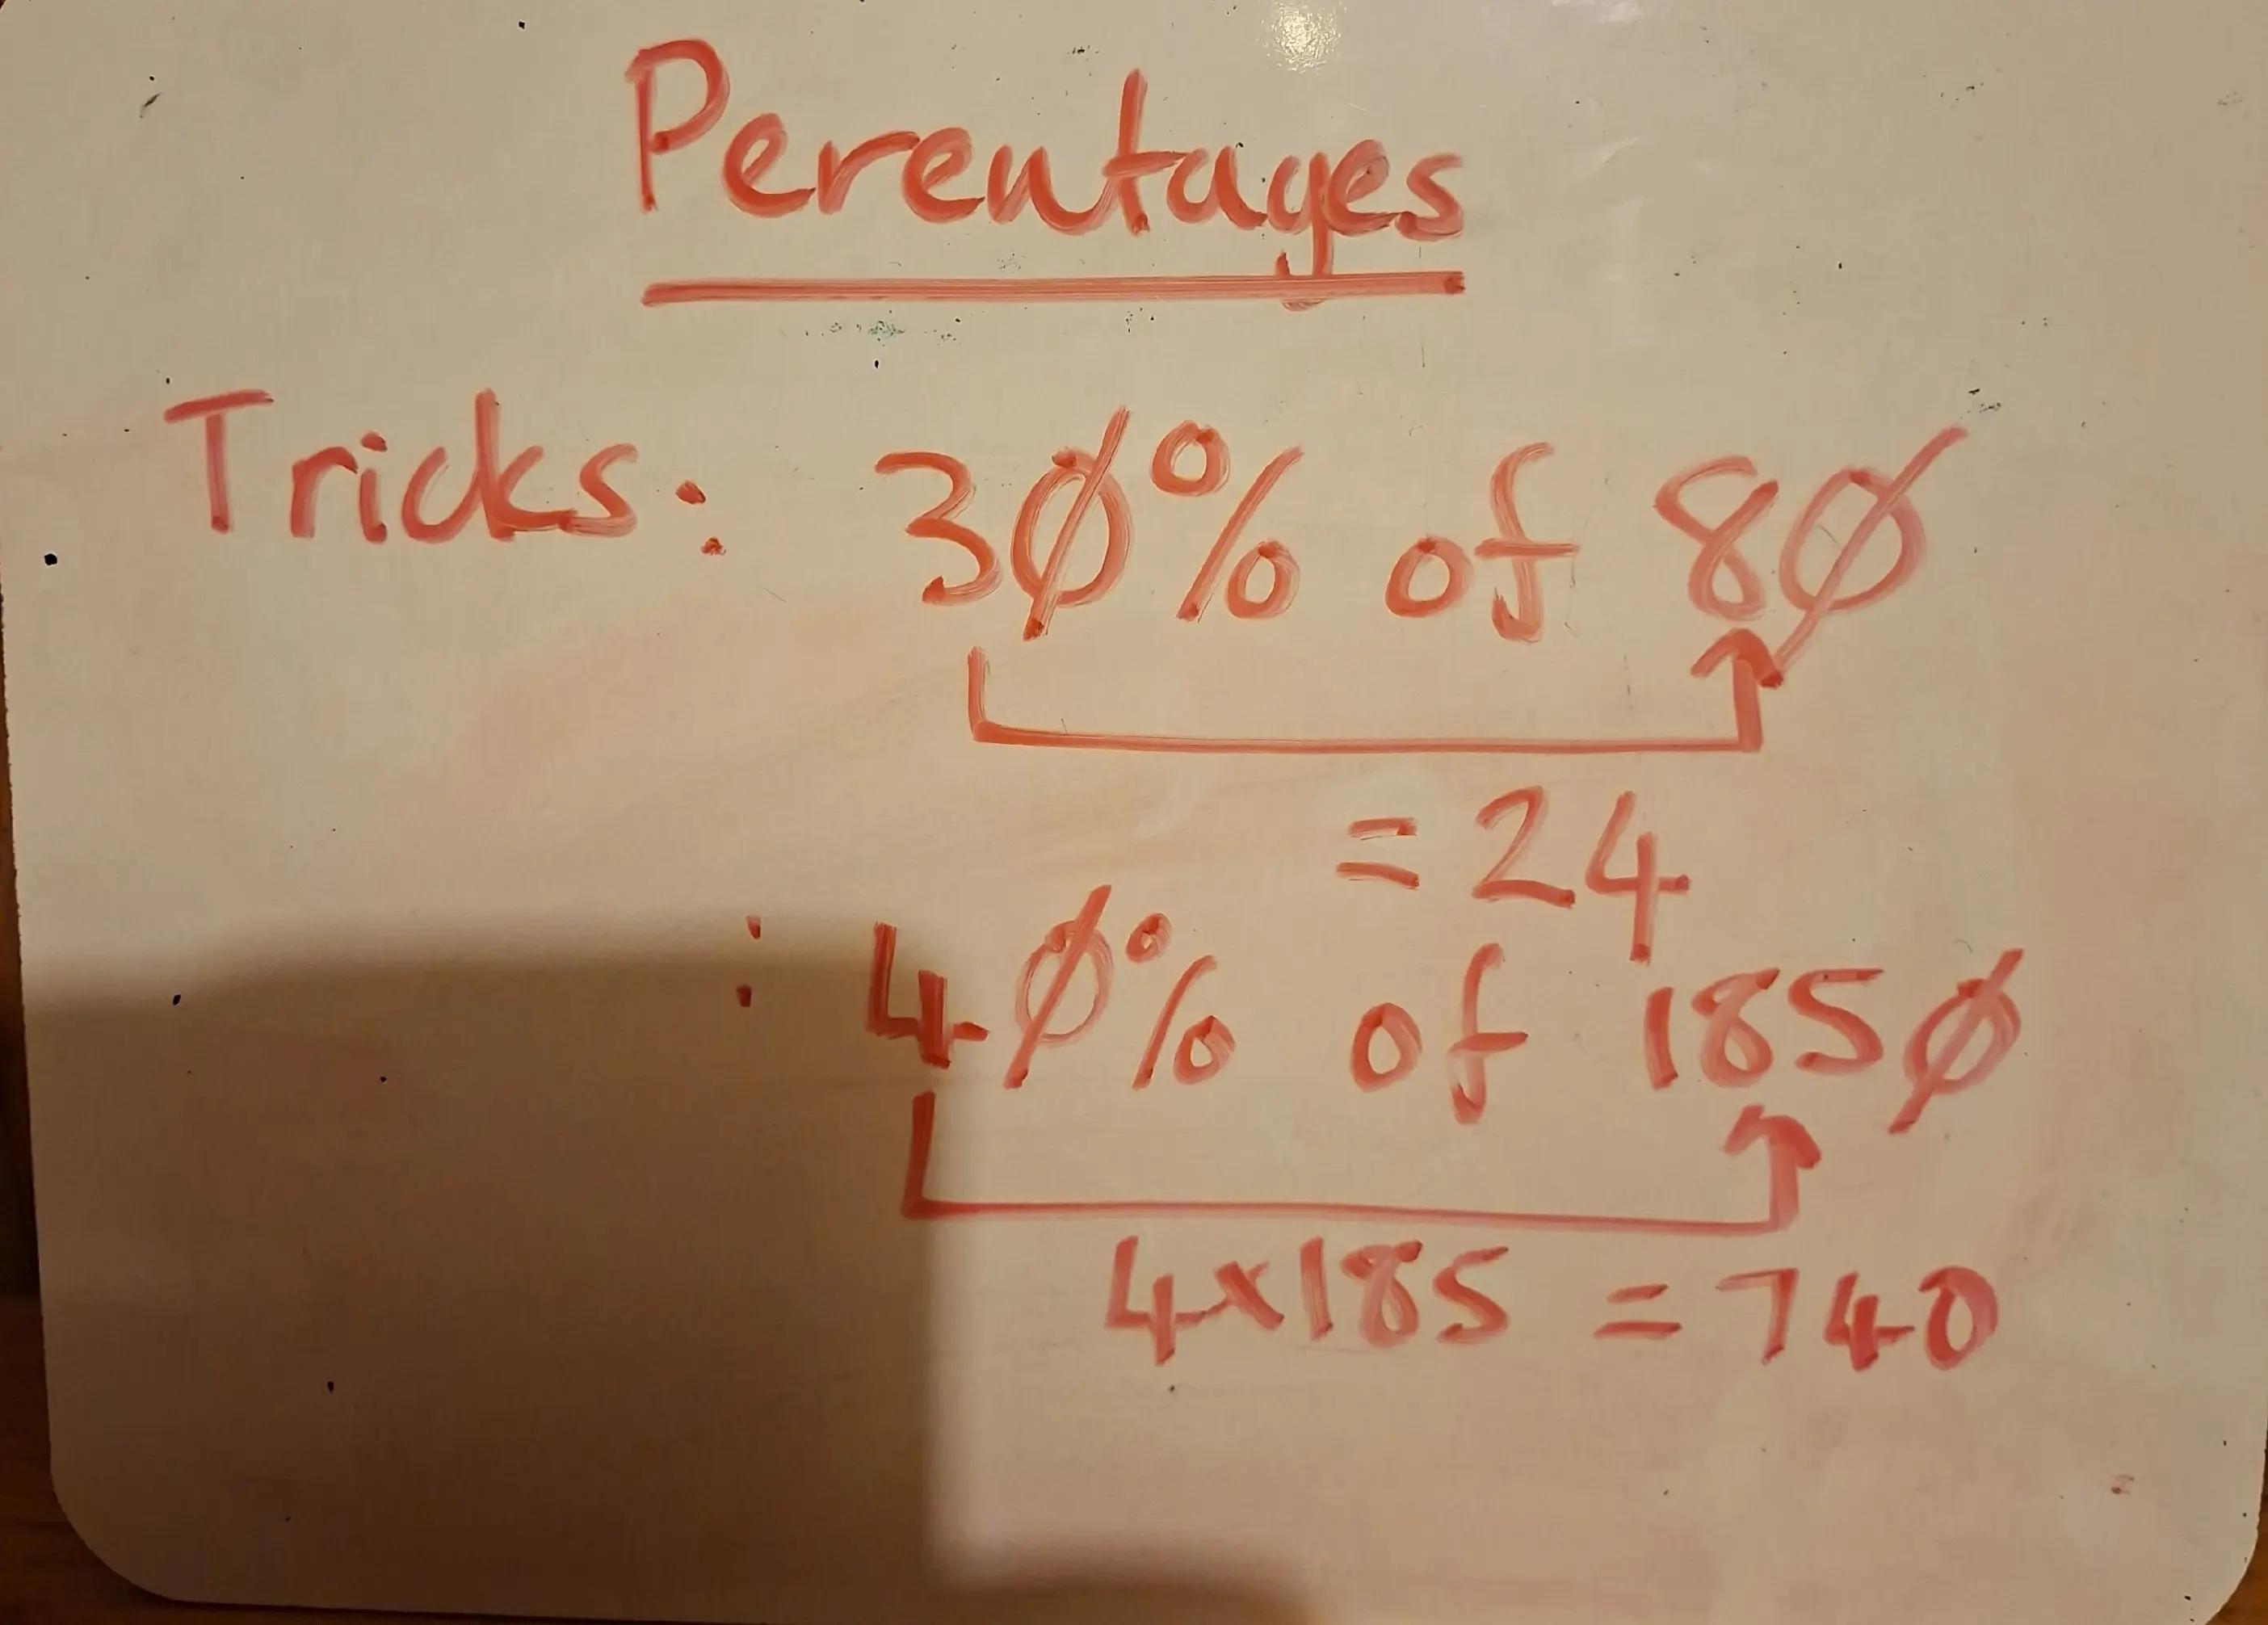 Perentages
Tricks: 30% of 80
= 24
: 40% of 1850
4x185 = 740